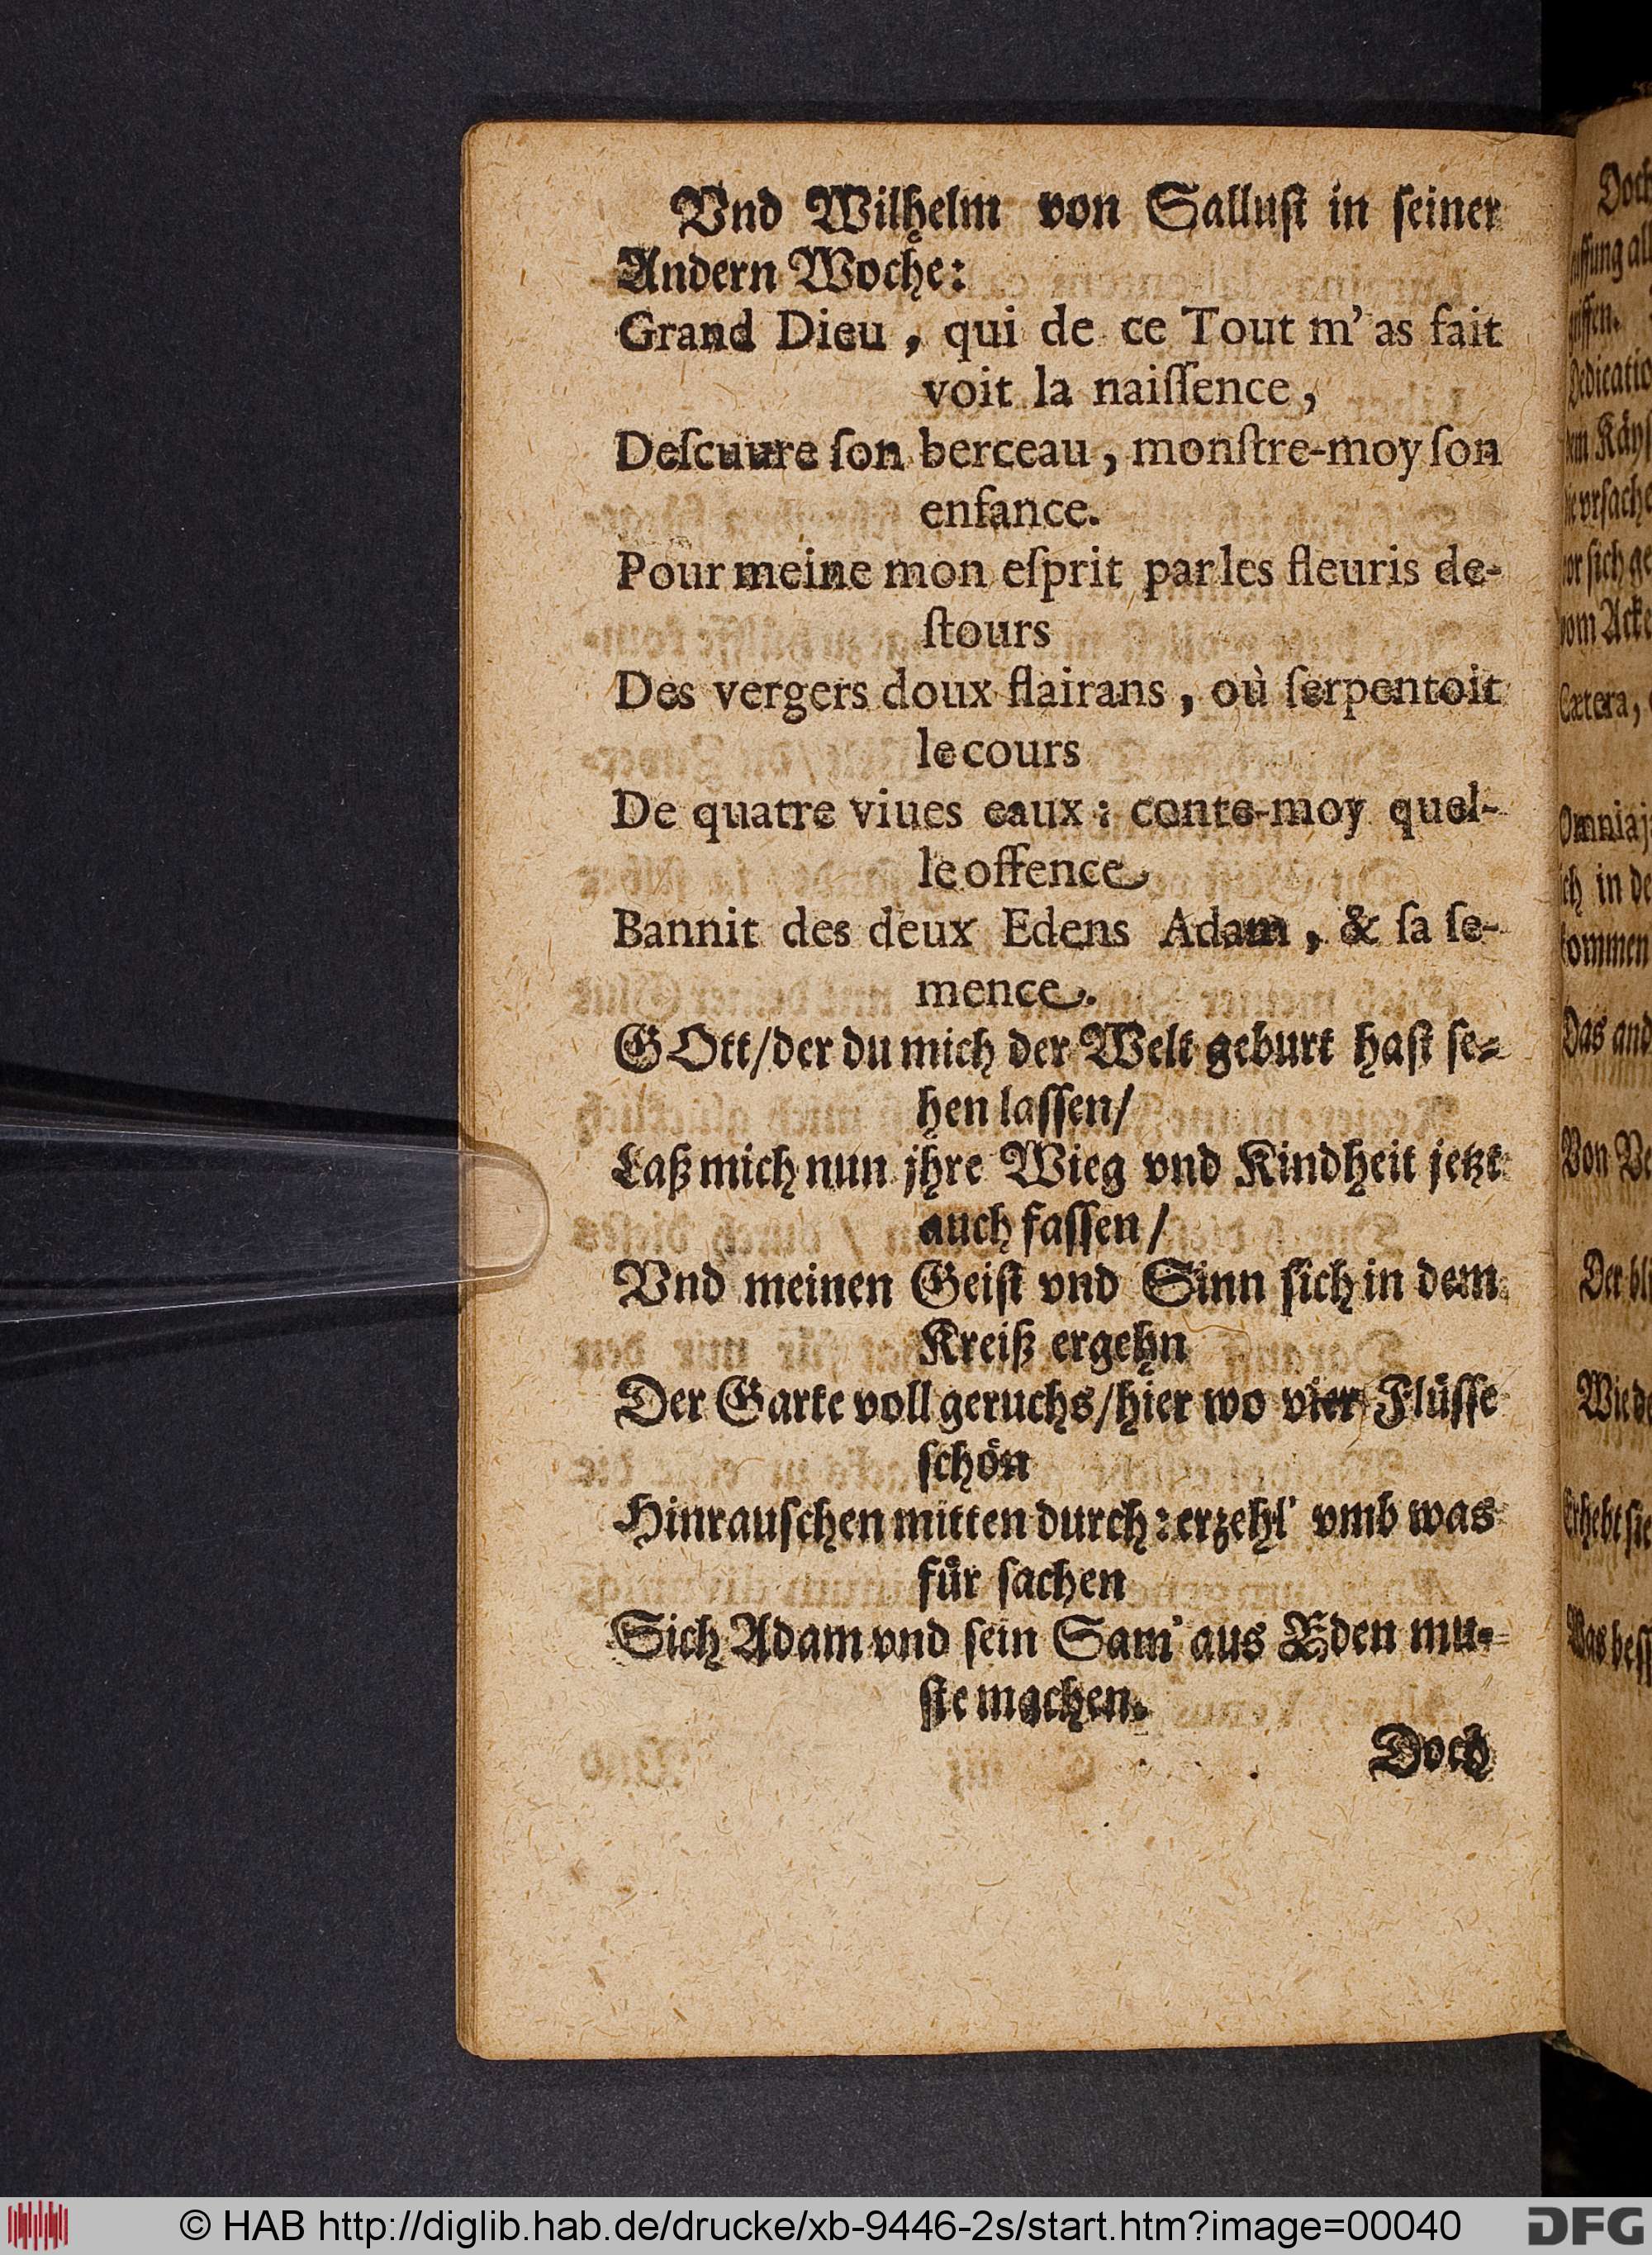 Vnd Wilhelm von Salluſt in ſeiner
Andern Woche:
Grand Dieu, qui de ce Tout m'as fait
voit la naiſſence,
Deſcuure ſon berceau, monſtre-moy ſon
enfance.
Pour meine mon eſprit par les fleuris de-
ſtours
Des vergers doux flairans, où ſerpentoit
le cours
De quatre viues eaux: conte-moy quel-
le offence
Bannit des deux Edens Adam, & ſa ſe-
mence.
GOtt/der du mich der Welt geburt haſt ſe-
hen laſſen/
Laß mich nun jhre Wieg vnd Kindheit jetzt
auch faſſen/
Vnd meinen Geiſt vnd Sinn ſich in dem
Kreiß ergehn
Der Garte voll geruchs/hier wo vier Flüſſe
ſchön
Hinrauſchen mitten durch: erzehl' vmb was
für ſachen
Sich Adam vnd ſein Sam' aus Eden mu-
ſte machen.
Doch
Doch
Das and
Omniaj
ich in de
kommen
Cætera,
vom Acke
© HAB http://diglib.hab.de/drucke/xb-9446-2s/start.htm?image=00040
DFG